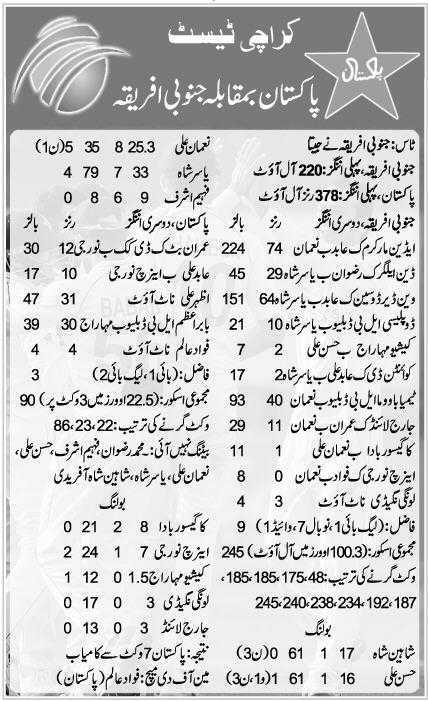 کراچی ٹیسٹ
پاکستان بمقابلہ جنوبی افریقہ
پاکستان
ٹاس: جنوبی افریقہ نے جیتا
جنوبی افریقہ، پہلی اننگز: 220 آل آؤٹ
پاکستان، پہلی اننگز: 378 رنز آل آؤٹ
جنوبی افریقہ، دوسری اننگز رنز بالز
ایڈین مارکرم ک عابد ب نعمان 74 224
ڈین ایلگر ک رضوان ب یاسر شاہ 29 45
وین ڈیر ڈوسین ک عابد ب یاسر شاہ 64 151
ڈوپلیسی ایل بی ڈبلیو ب یاسر شاہ 10 21
کیشیو مہاراج ب حسن علی 2 7
کوائنٹن ڈی ک عابد علی ب یاسر شاہ 2 17
ٹیمبا باووما ایل بی ڈبلیو ب نعمان 40 93
جارج لائنڈ ک عمران ب نعمان 11 29
کاگیسو ربادا ب نعمان علی 1 11
اینرچ نورجی ک فواد ب نعمان 0 8
لونگی نگیڈی ناٹ آؤٹ 3 4
فاضل: (لیگ بائی 1، نوبال 7، وائیڈ 1) 9
مجموعی اسکور: (100.3 اوورز میں آل آؤٹ) 245
وکٹ گرنے کی ترتیب: 48، 175، 185، 185،
187، 192، 234، 238، 240، 245
بولنگ
شاہین شاہ 17 1 61 0 (ن 3)
حسن علی 16 1 61 1 (و 1، ن 3)
نعمان علی 25.3 8 35 5 (ن 1)
یاسر شاہ 33 7 79 4
فہیم اشرف 9 6 8 0
پاکستان، دوسری اننگز رنز بالز
عمران بٹ ک ڈی کک ب نورجی 12 30
عابد علی ب اینرچ نورجی 10 17
اظہر علی ناٹ آؤٹ 31 47
بابر اعظم ایل بی ڈبلیو ب مہاراج 30 39
فواد عالم ناٹ آؤٹ 4 4
فاضل: (بائی 1، لیگ بائی 2) 3
مجموعی اسکور: (22.5 اوورز میں 3 وکٹ پر) 90
وکٹ گرنے کی ترتیب: 22، 23، 86
بیٹنگ نہیں آئی: محمد رضوان، فہیم اشرف، حسن علی،
نعمان علی، یاسر شاہ، شاہین شاہ آفریدی
بولنگ
کاگیسو ربادا 8 2 21 0
اینرچ نورجی 7 1 24 2
کیشیو مہاراج 1.5 0 12 1
لونگی نگیڈی 3 0 17 0
جارج لائنڈ 3 0 13 0
نتیجہ: پاکستان 7 وکٹ سے کامیاب
مین آف دی میچ: فواد عالم (پاکستان)